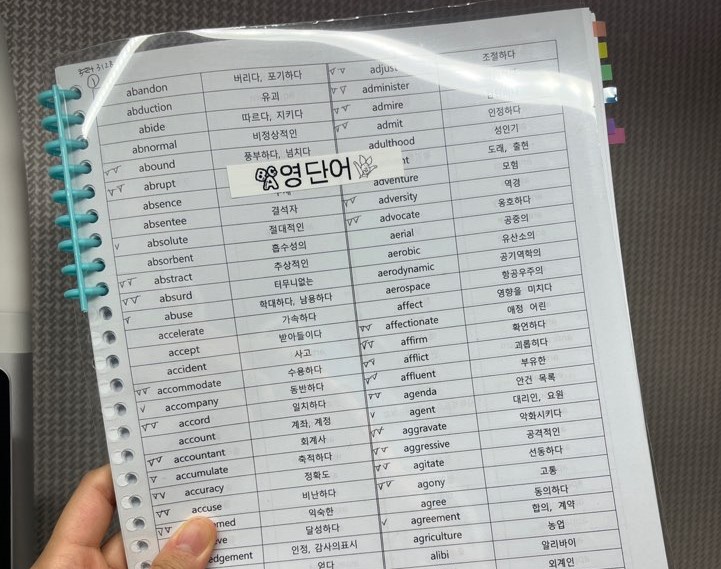 ①
abandon 버리다, 포기하다
abduction 유괴
abide 따르다, 지키다
abnormal 비정상적인
abound 풍부하다, 넘치다
abrupt
absence
absentee 결석자
absolute 절대적인
absorbent 흡수성의
abstract 추상적인
absurd 터무니없는
abuse 학대하다, 남용하다
accelerate 가속하다
accept 받아들이다
accident 사고
accommodate 수용하다
accompany 동반하다
accord 일치하다
account 계좌, 계정
accountant 회계사
accumulate 축적하다
accuracy 정확도
accuse 비난하다
omed 익숙한
ve 달성하다
edgement 인정, 감사의표시
얻다
영단어
adjus 조절하다
administer
admire
admit 인정하다
adulthood 성인기
nt 도래, 출현
adventure 모험
adversity 역경
advocate 옹호하다
aerial 공중의
aerobic 유산소의
aerodynamic 공기역학의
aerospace 항공우주의
affect 영향을 미치다
affectionate 애정 어린
affirm 확언하다
afflict 괴롭히다
affluent 부유한
agenda 안건 목록
agent 대리인, 요원
aggravate 악화시키다
aggressive 공격적인
agitate 선동하다
agony 고통
agree 동의하다
agreement 합의, 계약
agriculture 농업
alibi 알리바이
외계인